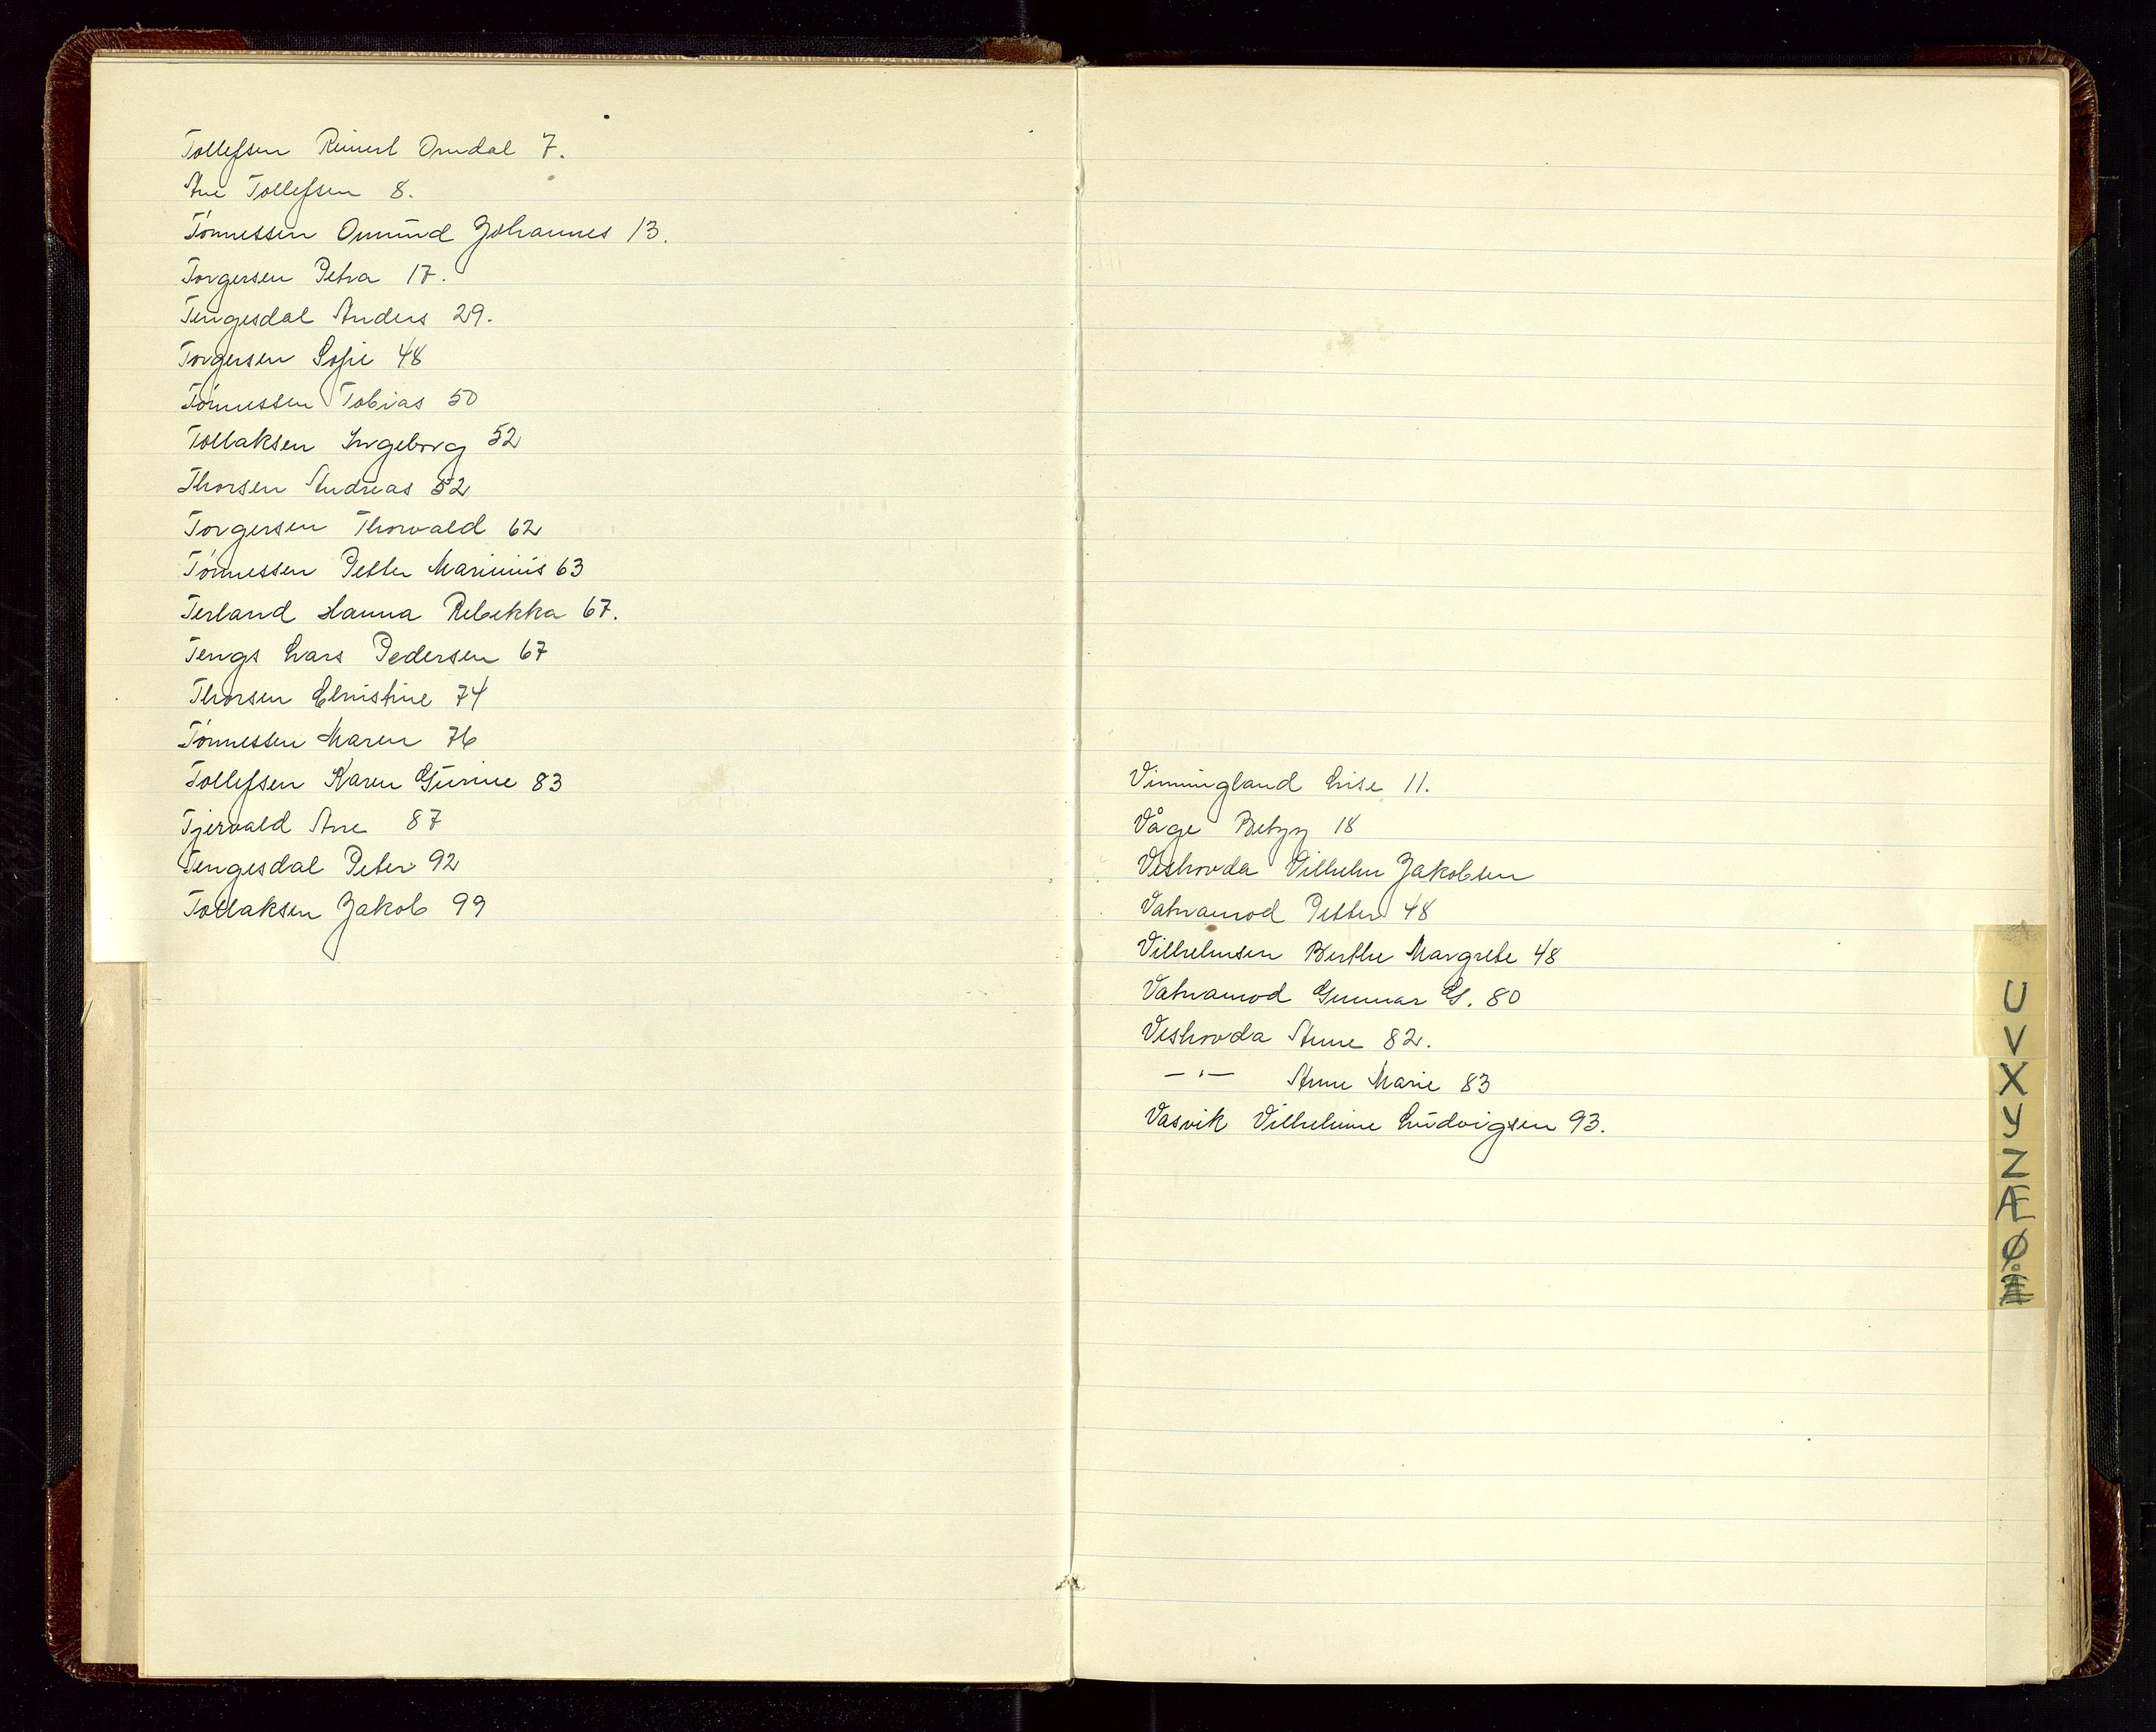 Tollefsen Reinert Omdal 7.
Ane Tollefsen 8.
Tónnessen Omund Johannes 13.
Torgersen Petra 17.
Tengesdal Anders 29.
Torgersen Sofie 48
Tónnessen Tobias 50
Tollaksen Ingeborg 52
Thorsen Andreas 52
Torgersen Thorvald 62
Tónnessen Petter Marinius 63
Terland Hanna Rebekka 67.
Tengs Lars Pedersen 67
Thorsen Christine 74
Tónnessen Maren 76
Tollefsen Karen Gurine 83
Tjervald Ane 87
Tengesdal Peter 92
Tollaksen Jakob 99
Vinningland Lise 11.
Våge Betzy 18
Veshovda Vilhelm Jakobsen
Vatnamod Petter 48
Vilhelmsen Berthe Margrete 48
Vatnamod Gunnar G. 80
Veshovda Anne 82.
— " — Anne Marie 83
Vasvik Vilhelmine Ludvigsen 93.
U
V
X
Y
Z
Æ
Ø